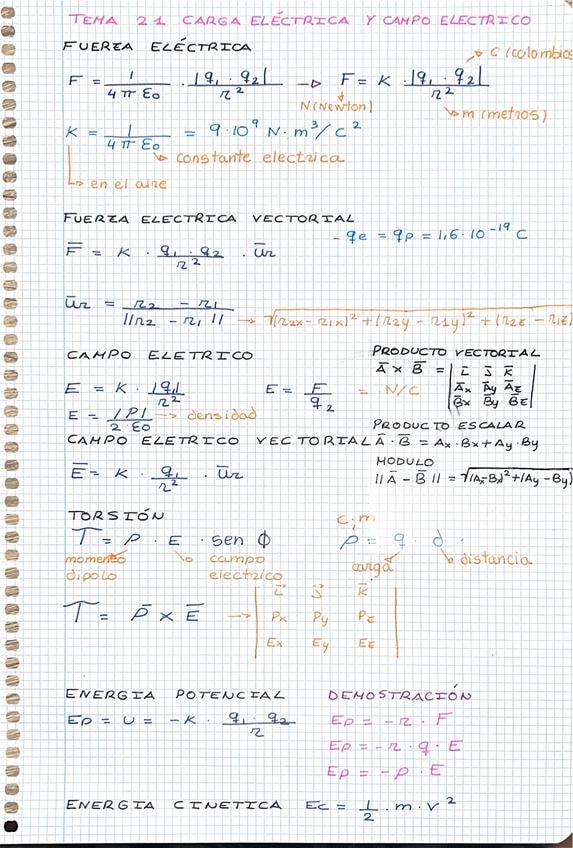 TEMA 21 CARGA ELÉCTRICA Y CAMPO ELECTRICO
FUERZA ELÉCTRICA
C (culombios
F = 1 / 4 π ε0 · |q1 · q2| / r² → F = K · |q1 · q2| / r²
N (Newton)
m (metros)
K = 1 / 4 π ε0 = 9·10⁹ N·m³/C²
constante electrica
en el aire
FUERZA ELECTRICA VECTORIAL
- qe = qp = 1,6·10⁻¹⁹ C
F̅ = K · q1 · q2 / r² · u̅r
u̅r = r2 - r1 / ||r2 - r1|| → √(r2x - r1x)² + (r2y - r1y)² + (r2z - r1z)
CAMPO ELETRICO
E = K · |q1| / r²
E = F / q2 = N/C
E = |P| / 2·ε0 → densidad
PRODUCTO VECTORIAL
A̅ x B̅ = | i̅ j̅ k̅ |
| A̅x A̅y A̅z |
| B̅x B̅y B̅z |
PRODUCTO ESCALAR
A̅ · B̅ = Ax · Bx + Ay · By
MODULO
||A̅ - B̅|| = √(Ax-Bx)² + (Ay-By)
CAMPO ELETRICO VECTORIAL
E̅ = K · q1 / r² · u̅r
TORSIÓN
T = P · E · sen ϕ
momento dipolo
campo electrico
C.m
p = q · d
carga
distancia
T = P̅ x E̅ → | i⃗ j⃗ k⃗ |
| Px Py Pz |
| Ex Ey Ez |
ENERGIA POTENCIAL
Ep = U = -K · q1 · q2 / r
DEMOSTRACIÓN
Ep = -r · F
Ep = -r · q · E
Ep = -p · E
ENERGIA CINETICA Ec = 1/2 · m · v²